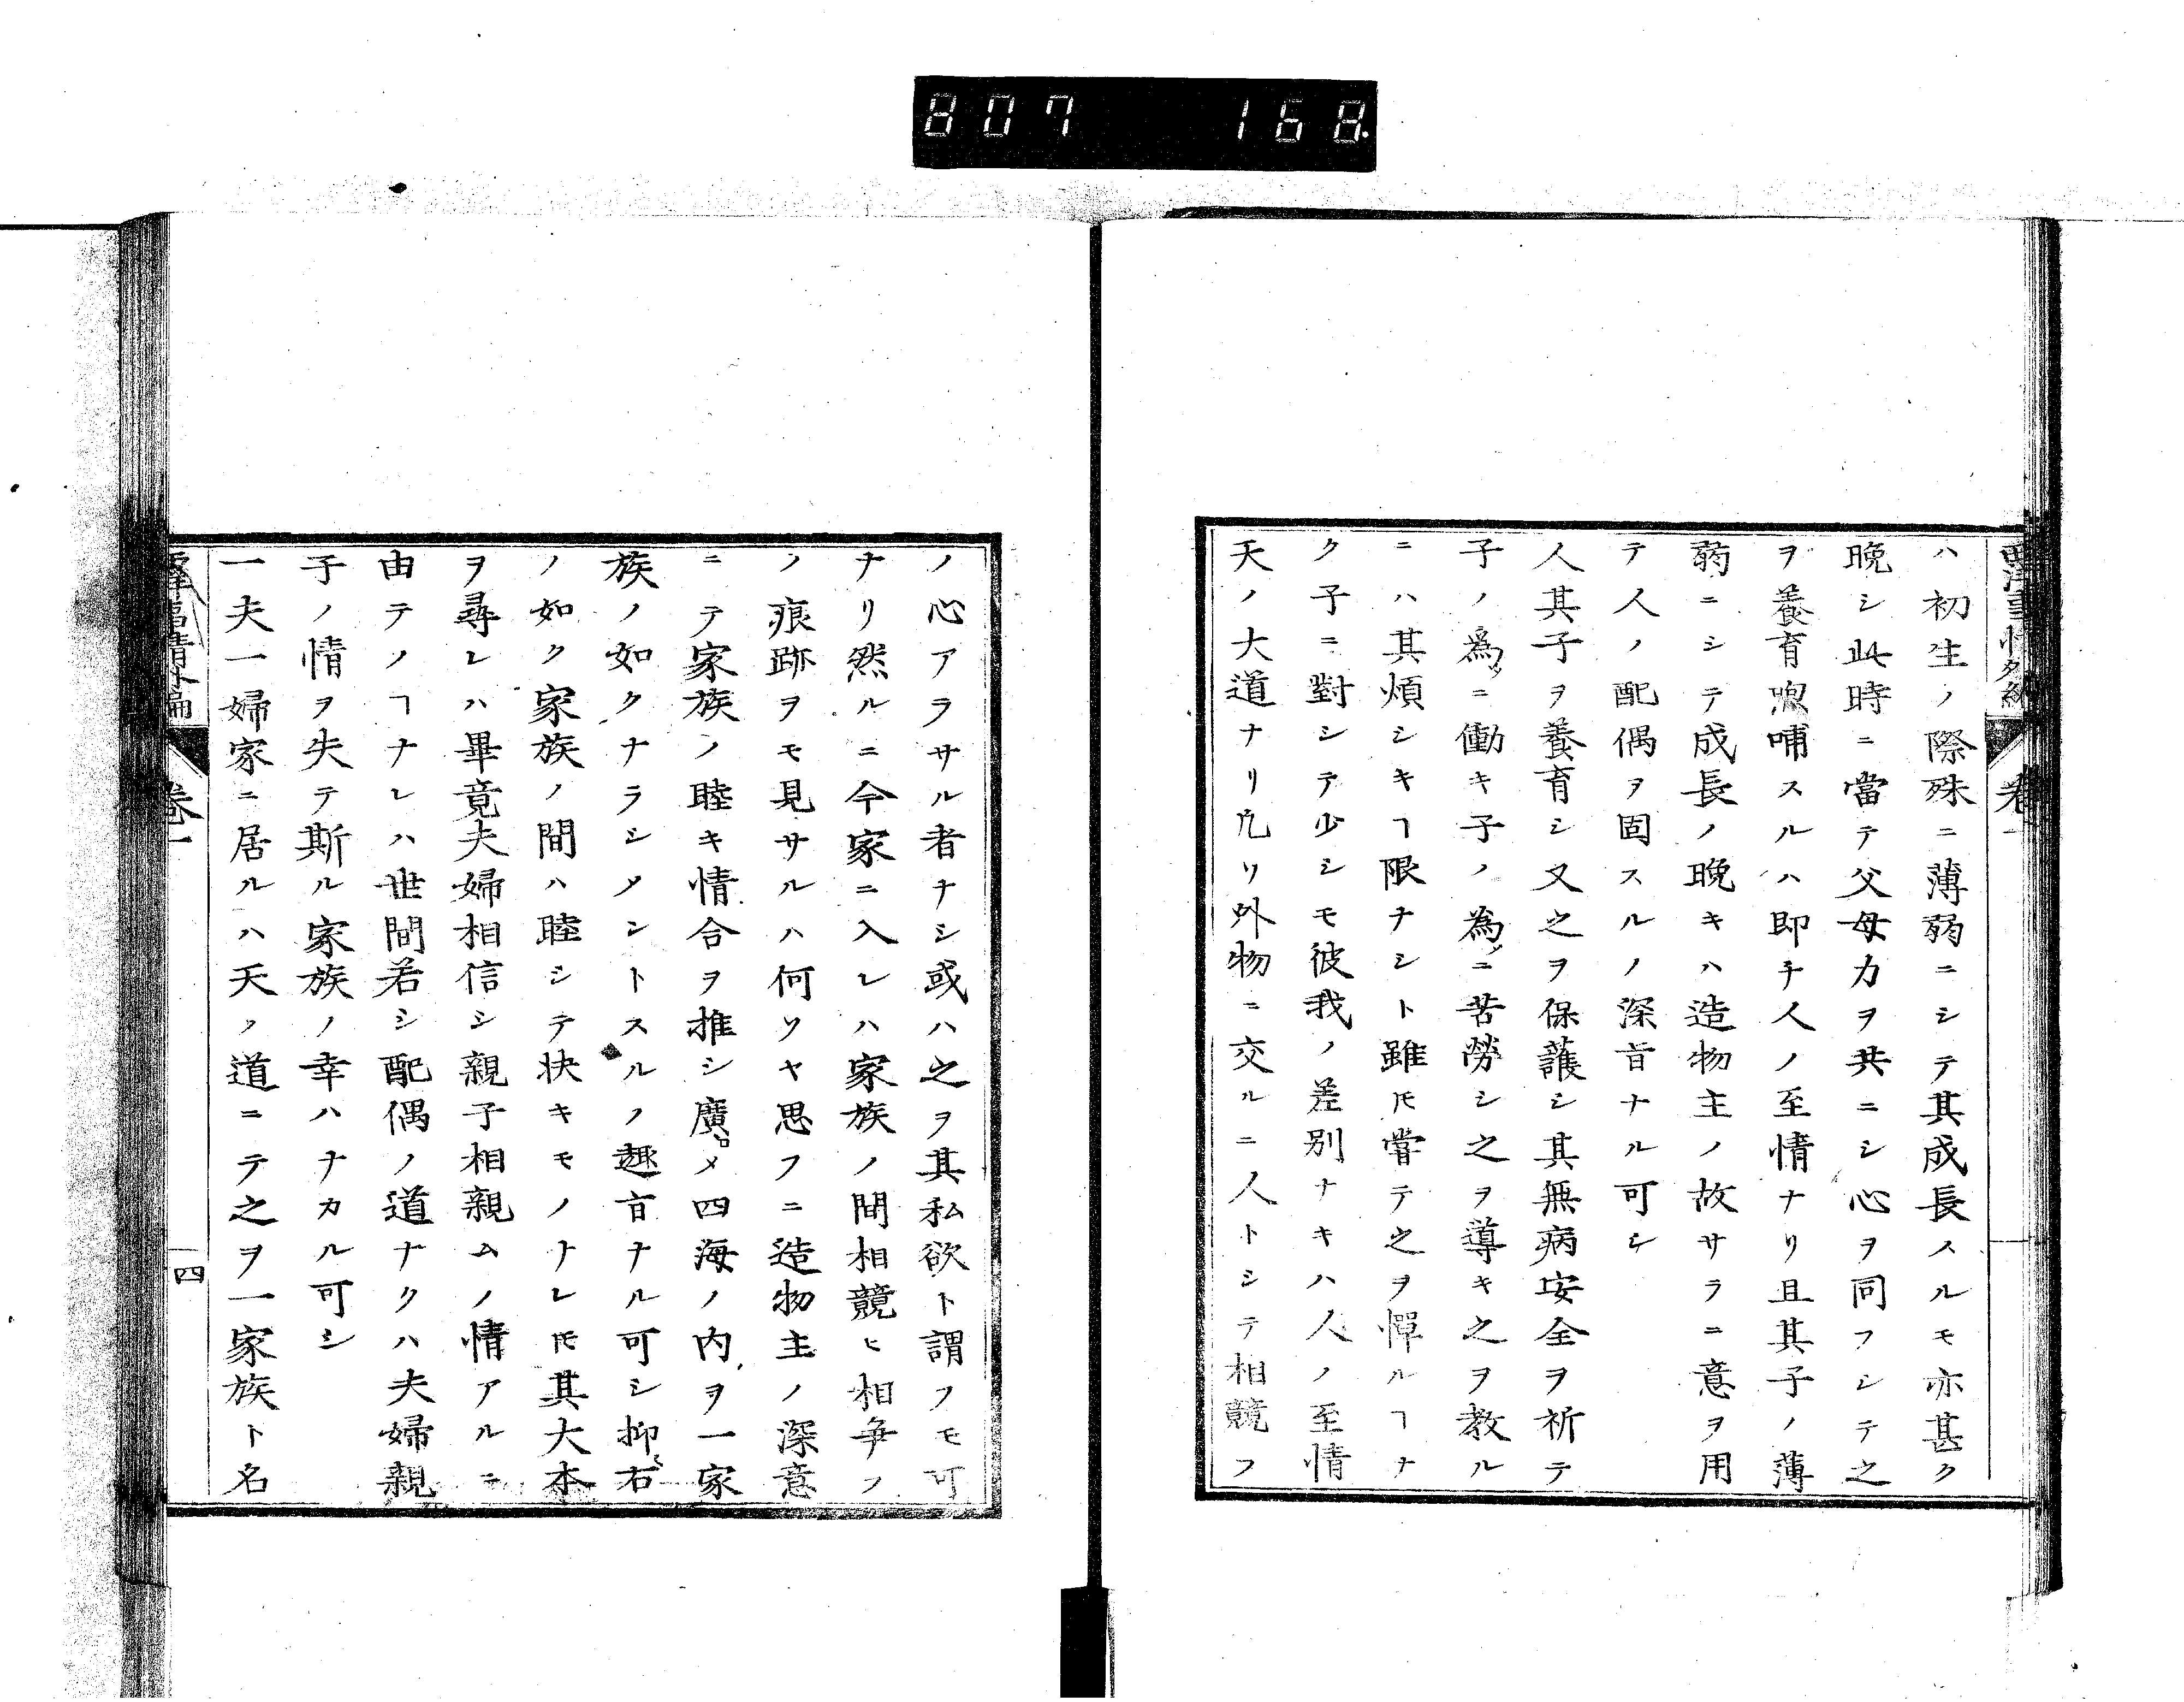 807 168.
西洋事情外編 卷一
ハ初生ノ際殊ニ薄弱ニシテ其成長スルモ亦甚ク
晩シ此時ニ當テ父母力ヲ共ニシ心ヲ同フシテ之
ヲ養育喣哺スルハ即チ人ノ至情ナリ且其子ノ薄
弱ニシテ成長ノ晩キハ造物主ノ故サラニ意ヲ用
テ人ノ配偶ヲ固スルノ深旨ナル可シ
人其子ヲ養育シ又之ヲ保護シ其無病安全ヲ祈テ
子ノ爲メニ働キ子ノ為メニ苦勞シ之ヲ導キ之ヲ教ル
ニハ其煩シキヿ限ナシト雖𪜈嘗テ之ヲ憚ルヿナ
ク子ニ對シテ少シモ彼我ノ差別ナキハ人ノ至情
天ノ大道ナリ凢ソ外物ニ交ルニ人トシテ相競フ
ノ心アラサル者ナシ或ハ之ヲ其私欲ト謂フモ可
ナリ然ルニ今家ニ入レハ家族ノ間相競ヒ相爭フ
ノ痕跡ヲモ見サルハ何ソヤ思フニ造物主ノ深意
ニテ家族ノ睦キ情合ヲ推シ廣ロメ四海ノ内ヲ一家
族ノ如クナラシメントスルノ趣旨ナル可シ抑〻右
ノ如ク家族ノ間ハ睦シテ快キモノナレ𪜈其大本
ヲ尋レハ畢竟夫婦相信シ親子相親ムノ情アルニ
由テノヿナレハ世間若シ配偶ノ道ナクハ夫婦親
子ノ情ヲ失テ斯ル家族ノ幸ハナカル可シ
一夫一婦家ニ居ルハ天ノ道ニテ之ヲ一家族ト名
西洋事情外編 卷一 四